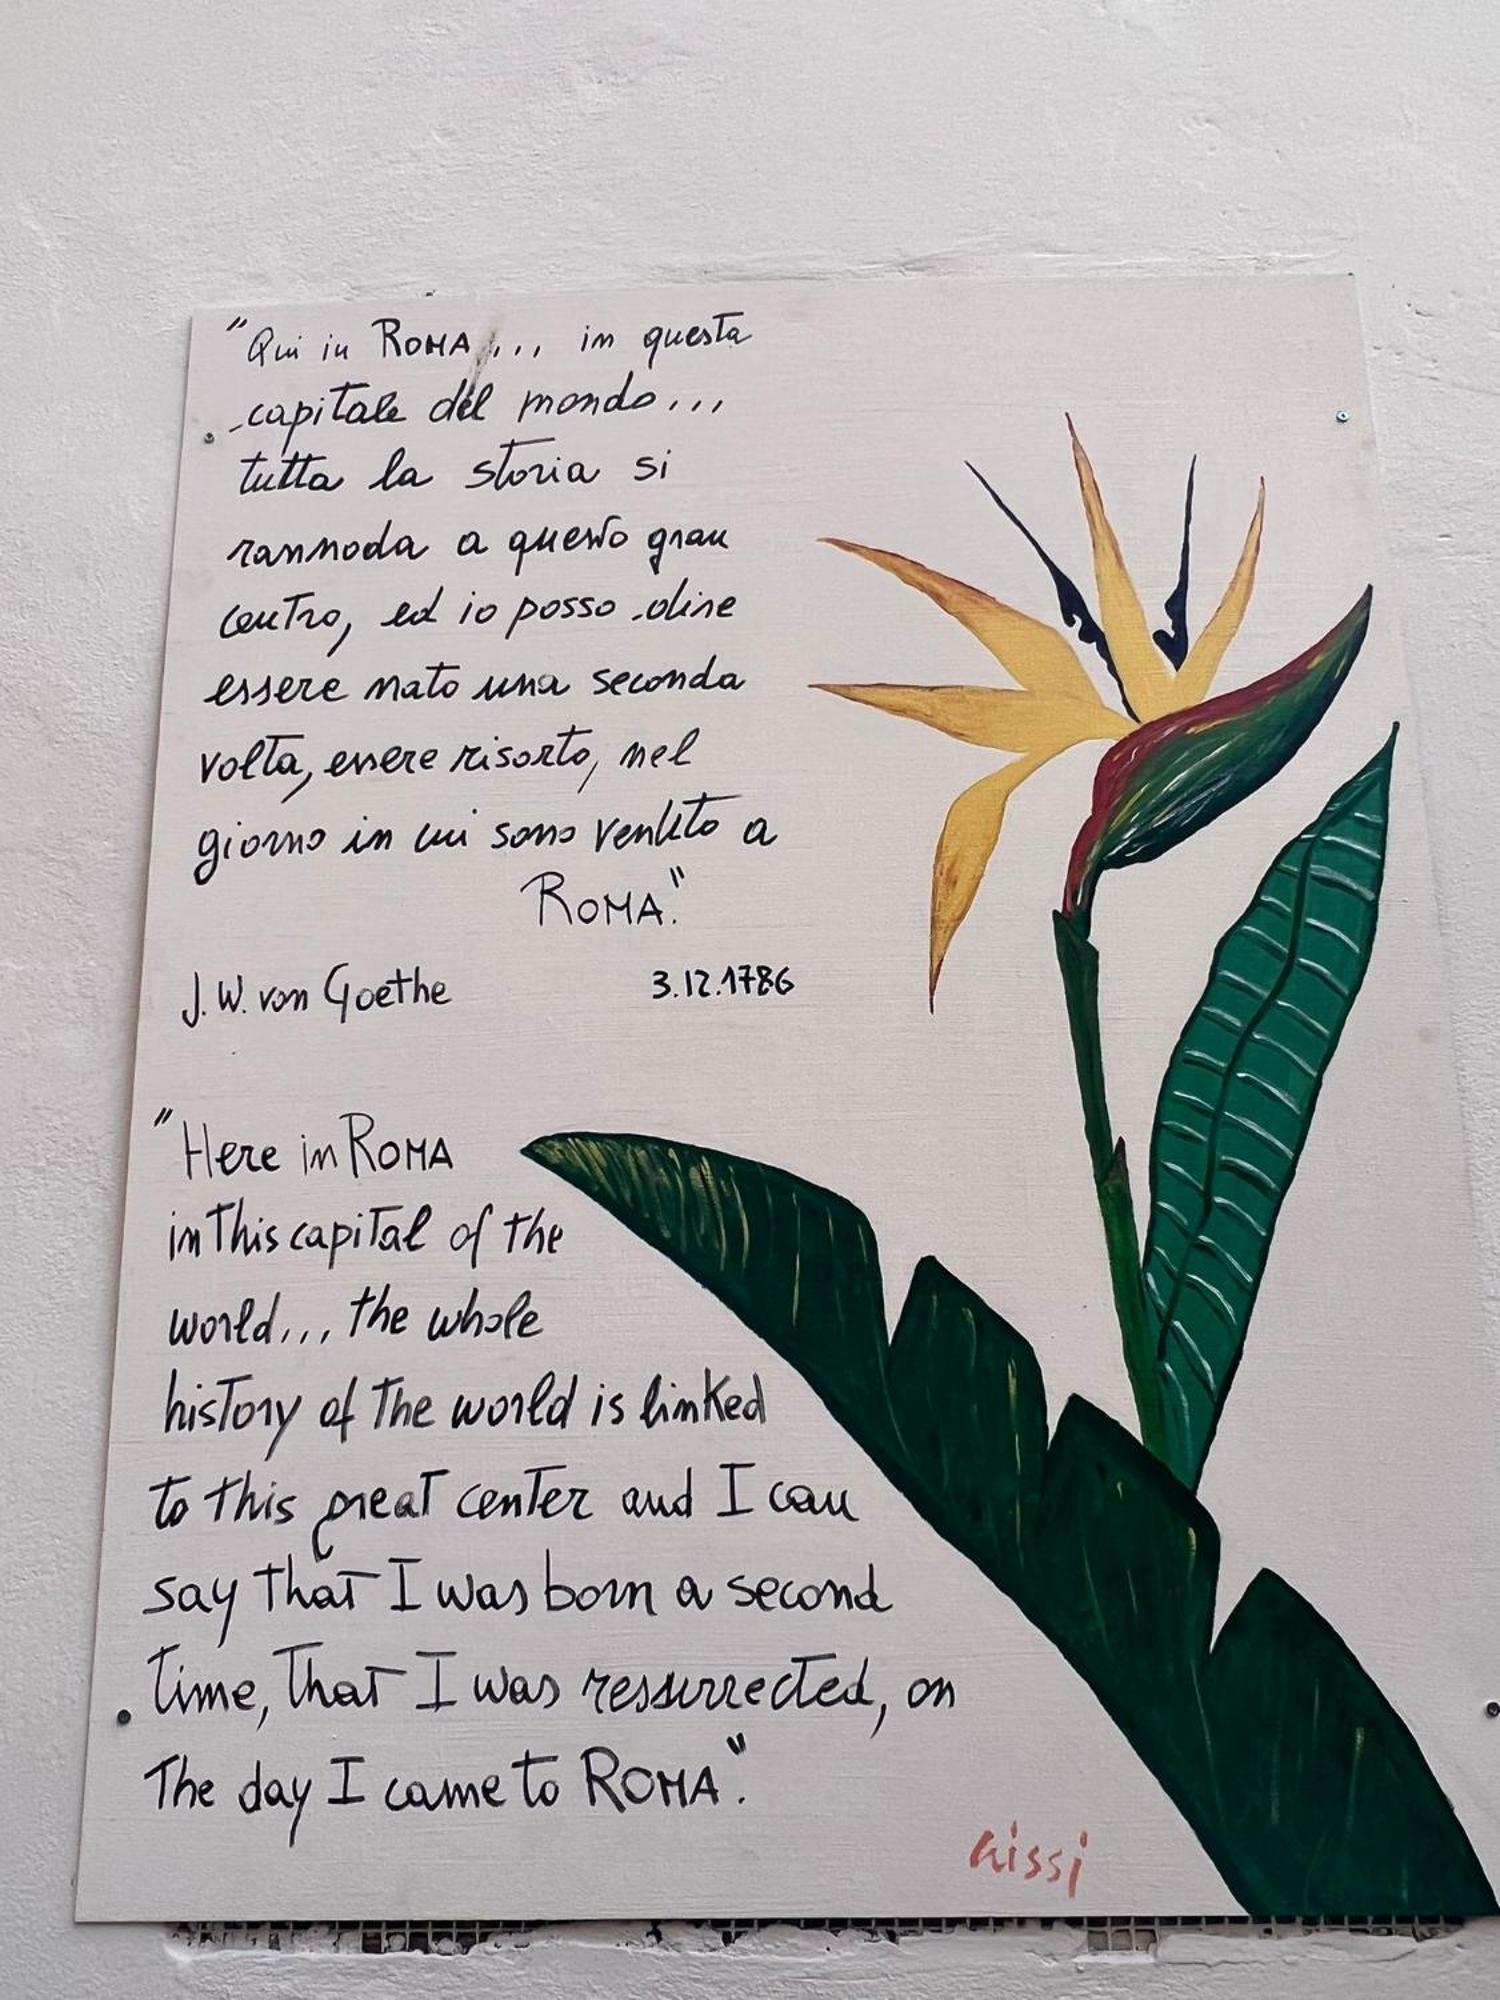 "Qui in ROMA... in questa
capitale del mondo...
tutta la storia si
rannoda a questo gran
centro, ed io posso dire
essere nato una seconda
volta, essere risorto, nel
giorno in cui sono venuto a
ROMA."
J. W. von Goethe 3.12.1786
"Here in ROMA
in this capital of the
world... the whole
history of the world is linked
to this great center and I can
say that I was born a second
time, that I was ressurrected, on
The day I came to ROMA".
aissi